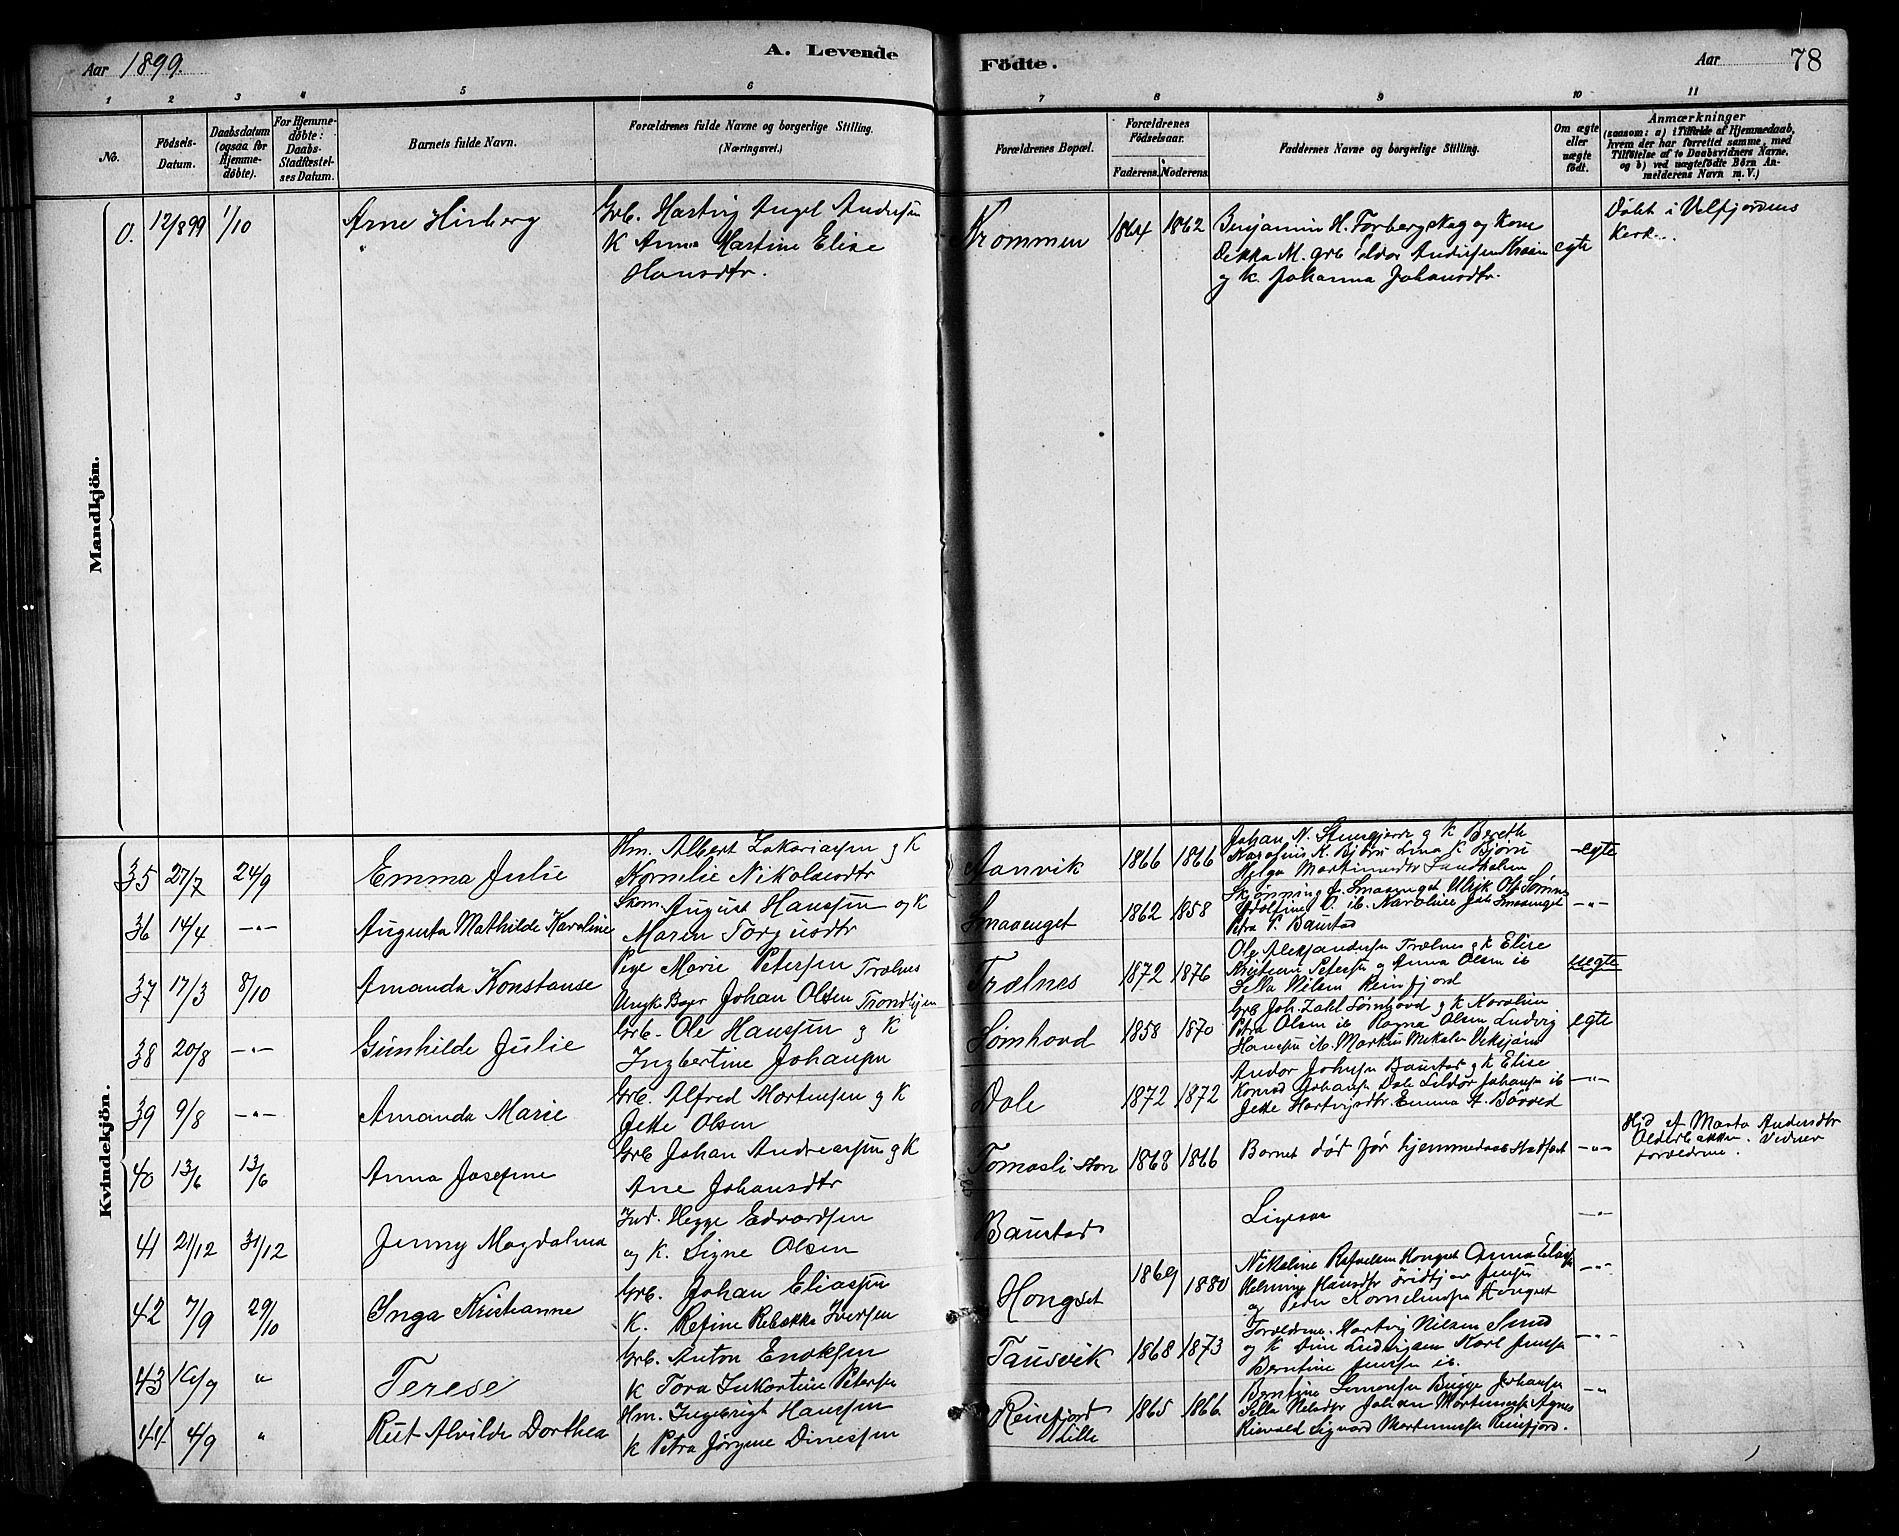 Aar 1899.
A. Levende
Födte.
Aar
78
1 2 3 4 5 6 7 8 9 10 11
No.
Födsels-Datum.
Daabsdatum (ogsaa for Hjemme-döbte).
For Hjemme-döbte: Daabs-Stadfæstel-ses Datum.
Barnets fulde Navn.
Forældrenes fulde Navne og borgerlige Stilling.
(Næringsvei.)
Forældrenes Bopæl.
Forældrenes Födselsaar.
Faderens. Moderens.
Faddernes Navne og borgerlige Stilling.
Om ægte eller uægte födt.
Anmærkninger
(saasom: a) i Tilfælde af Hjemmedaab,
hvem der har forrettet samme, med
Tilföielse af to Daabsvidners Navne,
og b) ved uægtefödte Börn An-
melderens Navn m. V.)
Mandkjön.
0. 12/8 99 1/10 Arne Hisberg
Grb. Hartvig Angel Andersen
K Anna Martine Elise
Hansdtr.
Krommen 1864 1862
Benjamin H. Forberg Skog og Kone
Dekka M. grb Andersen
og K. Johanna Johansdtr.
egte
Döbt i Velfjordens
Kerk.
Kvindekjön.
35 27/7 24/9 Emma Julie
Hm. Albert Zakariassen og K
Kornelie Nikolaisdtr
Aanvik 1866 1866
Johan N. K Bereth
egte
36 14/4 -"- Augusta Mathilde Karoline
August Hanssen og K
Maren Torgusdtr
Smaaenget 1862 1858
Petra P. Baustad
-"-
37 17/3 8/10 Amanda Konstanse
Pige Marie Petersen Trælnes
Ungk. Johan Olsen Trondhjem
Trælnes 1872 1876
Ole Aleksandersen Trælnes og K Elise
Kristine Petersen og Anna Olsen ib
Nilsen Reinfjord
uegte
38 20/8 -"- Gunhilde Julie
Grb. Ole Hanssen og K
Ingbertine Johansen
Sömhovd 1858 1870
Grb Joh. Zahl Sömhovd og K Karoline
Petra Olsen ib Ragna Olsen Ludvig
Hanssen ib. Markus Mikalsen
egte
39 9/8 -"- Amanda Marie
Grb. Alfred Mortensen og K
Jette Olsen
Dale 1872 1872
Andor Johnsen Baustad og K Elise
Konrad Johansen Dale Johansen ib
Jette Hartvigsdtr. Emma A.
-"-
40 13/6 13/6 Anna Josefine
Grb Johan Andreassen og K
Ane Johansdtr
Tomasli 1868 1866
Barnet död för hjemmedaab Stadfæst
-"-
Hjd af Marta Andersdtr
Olderbakken. Vidner
forældrene.
41 21/12 31/12 Jenny Magdalena
Ind. Hegge Edvardsen
og K. Signe Olsen
Baustad
Ligesaa
-"-
42 7/9 29/10 Inga Kristianne
Grb. Johan Eliassen
K. Refine Rebekka Iversen
Hongset 1869 1880
Nikoline Rafaelsen Hongset Anna
Hansdtr Jensen
og Peder Kornelinssen Hongset
-"-
43 16/9 " Terese
Grb. Anton Enoksen
K Tora Petersen
Tausvik 1868 1873
Forældrene. Hartvig Nilsen
og K Dine Ludvigsen Karl Jensen
Berntine Jensen ib.
-"-
44 4/9 " Rut Alvilde Dorthea
Hm. Ingebrigt Hanssen
K Petra Jörgine Dinessen
Reinfjord
Lille
1865 1866.
Berntine Simonsen Johansen
Johan Mortinussen Agnes
Sigvard Martinussen Reinfjord.
-"